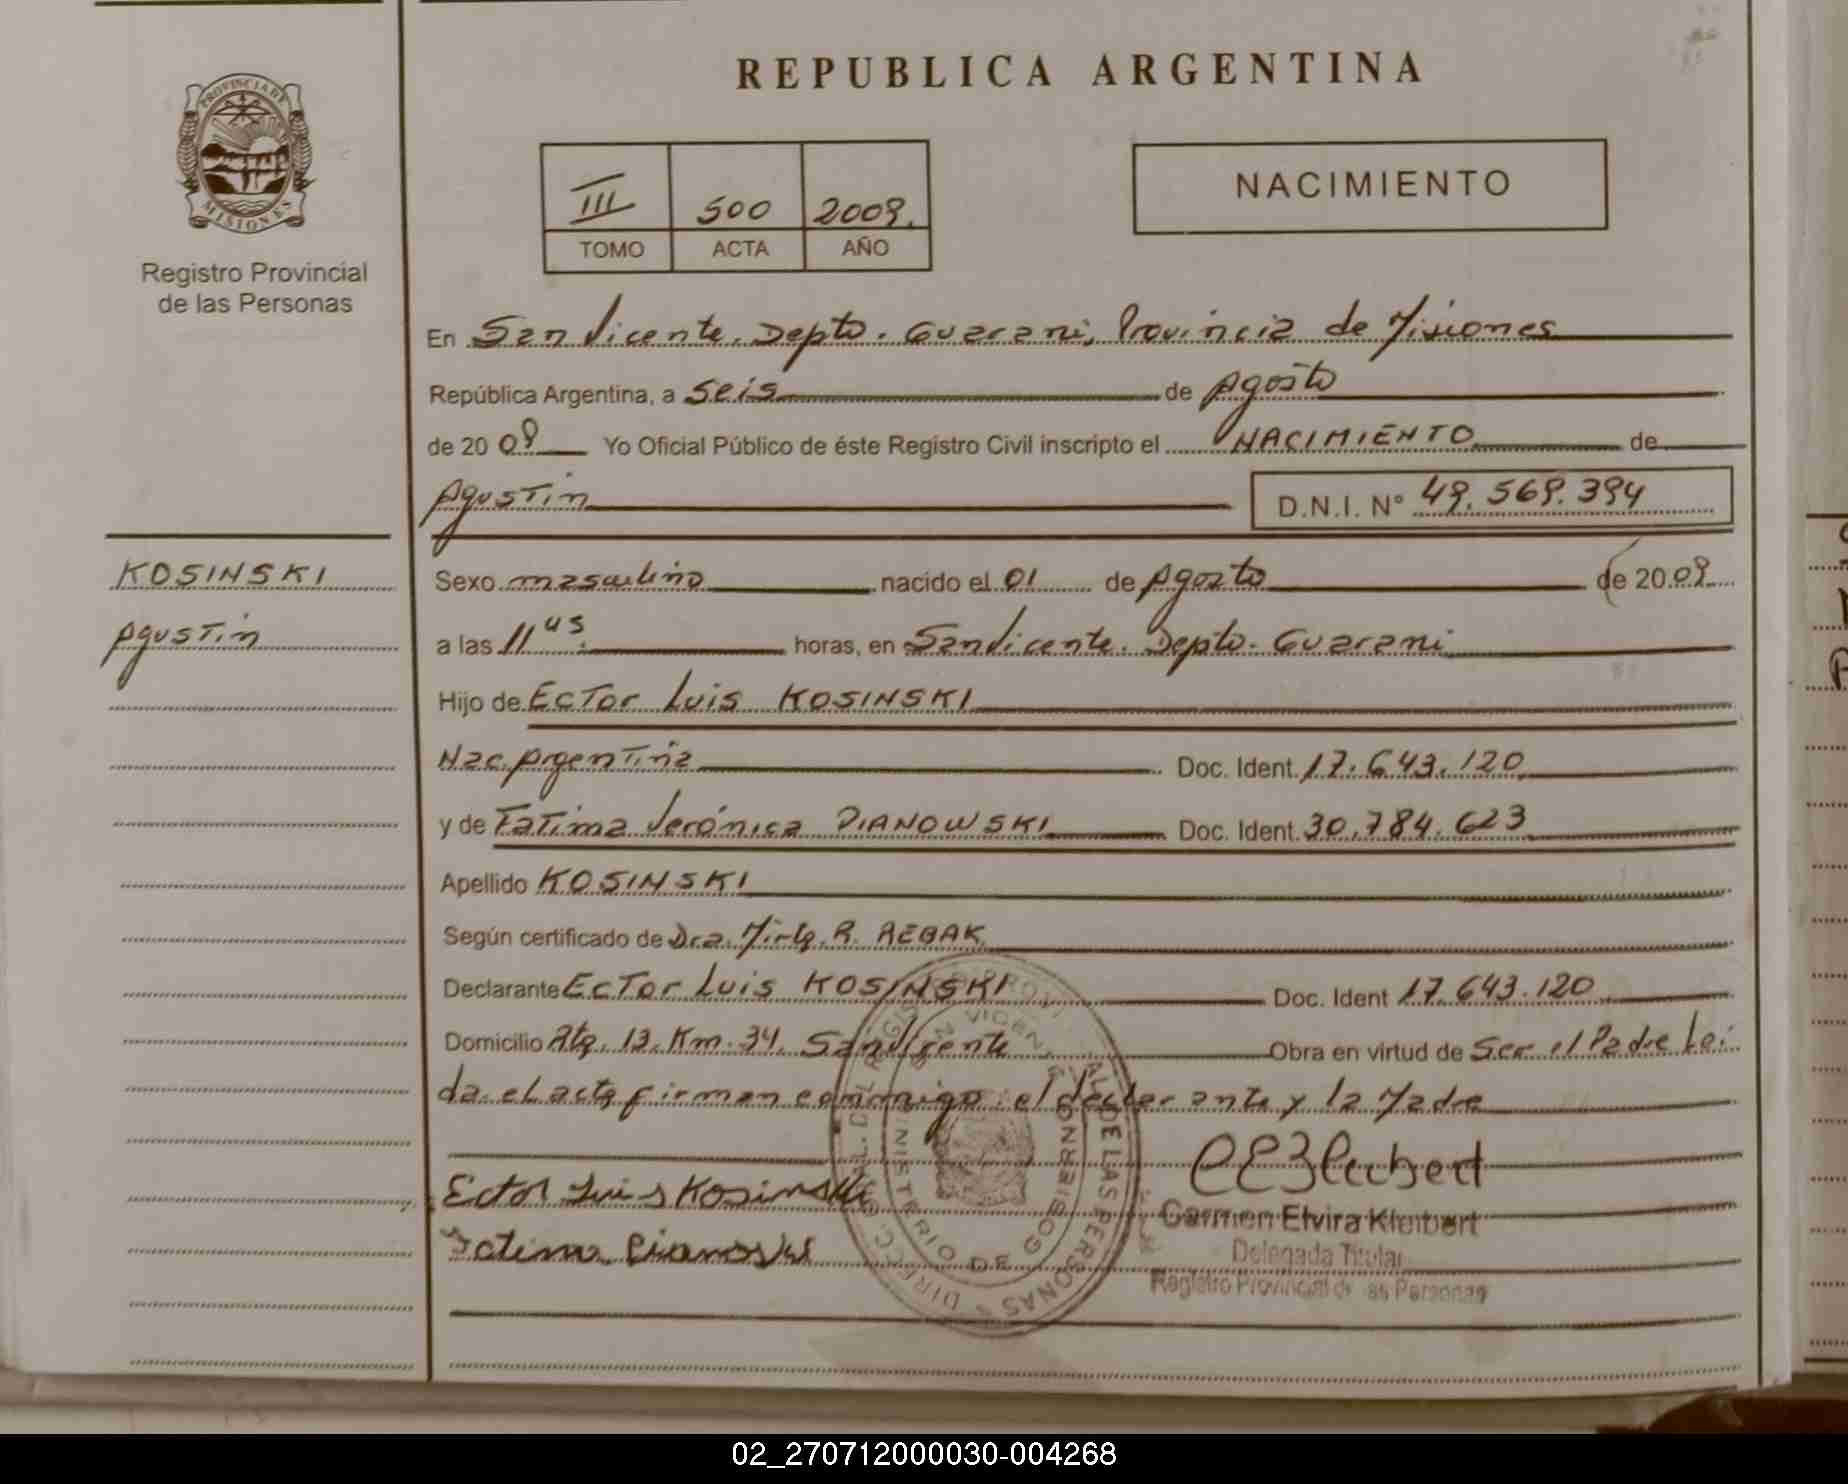 REPUBLICA ARGENTINA
PROVINCIA DE MISIONES
Registro Provincial
de las Personas
III 500 2009.
TOMO ACTA AÑO
NACIMIENTO
En San Vicente. Depto. Guarani, Provincia de Misiones
República Argentina, a seis de Agosto
de 20 09 Yo Oficial Público de éste Registro Civil inscripto el NACIMIENTO de
Agustin D.N.I. N° 49.569.394
KOSINSKI
Agustin
Sexo masculino nacido el 01 de Agosto de 20 09
a las 11 hs. horas, en San Vicente. Depto. Guarani
Hijo de Ector Luis KOSINSKI
Nac. Argentina Doc. Ident. 17.643.120
y de Fatima Verónica PIANOWSKI Doc. Ident. 30.784.623
Apellido KOSINSKI
Según certificado de Dra. Mirta R. REBAK
Declarante Ector Luis KOSINSKI Doc. Ident 17.643.120
Domicilio Rta. 13. Km. 34. San Vicente Obra en virtud de Ser el Padre Lei
da el acta firman conmigo el declarante y la Madre
Ector Luis Kosinski
Fatima
Carmen Elvira Kleibert
Delegada Titular
Registro Provincial de las Personas
MINISTERIO DE GOBIERNO
SAN VICENTE
02_270712000030-004268